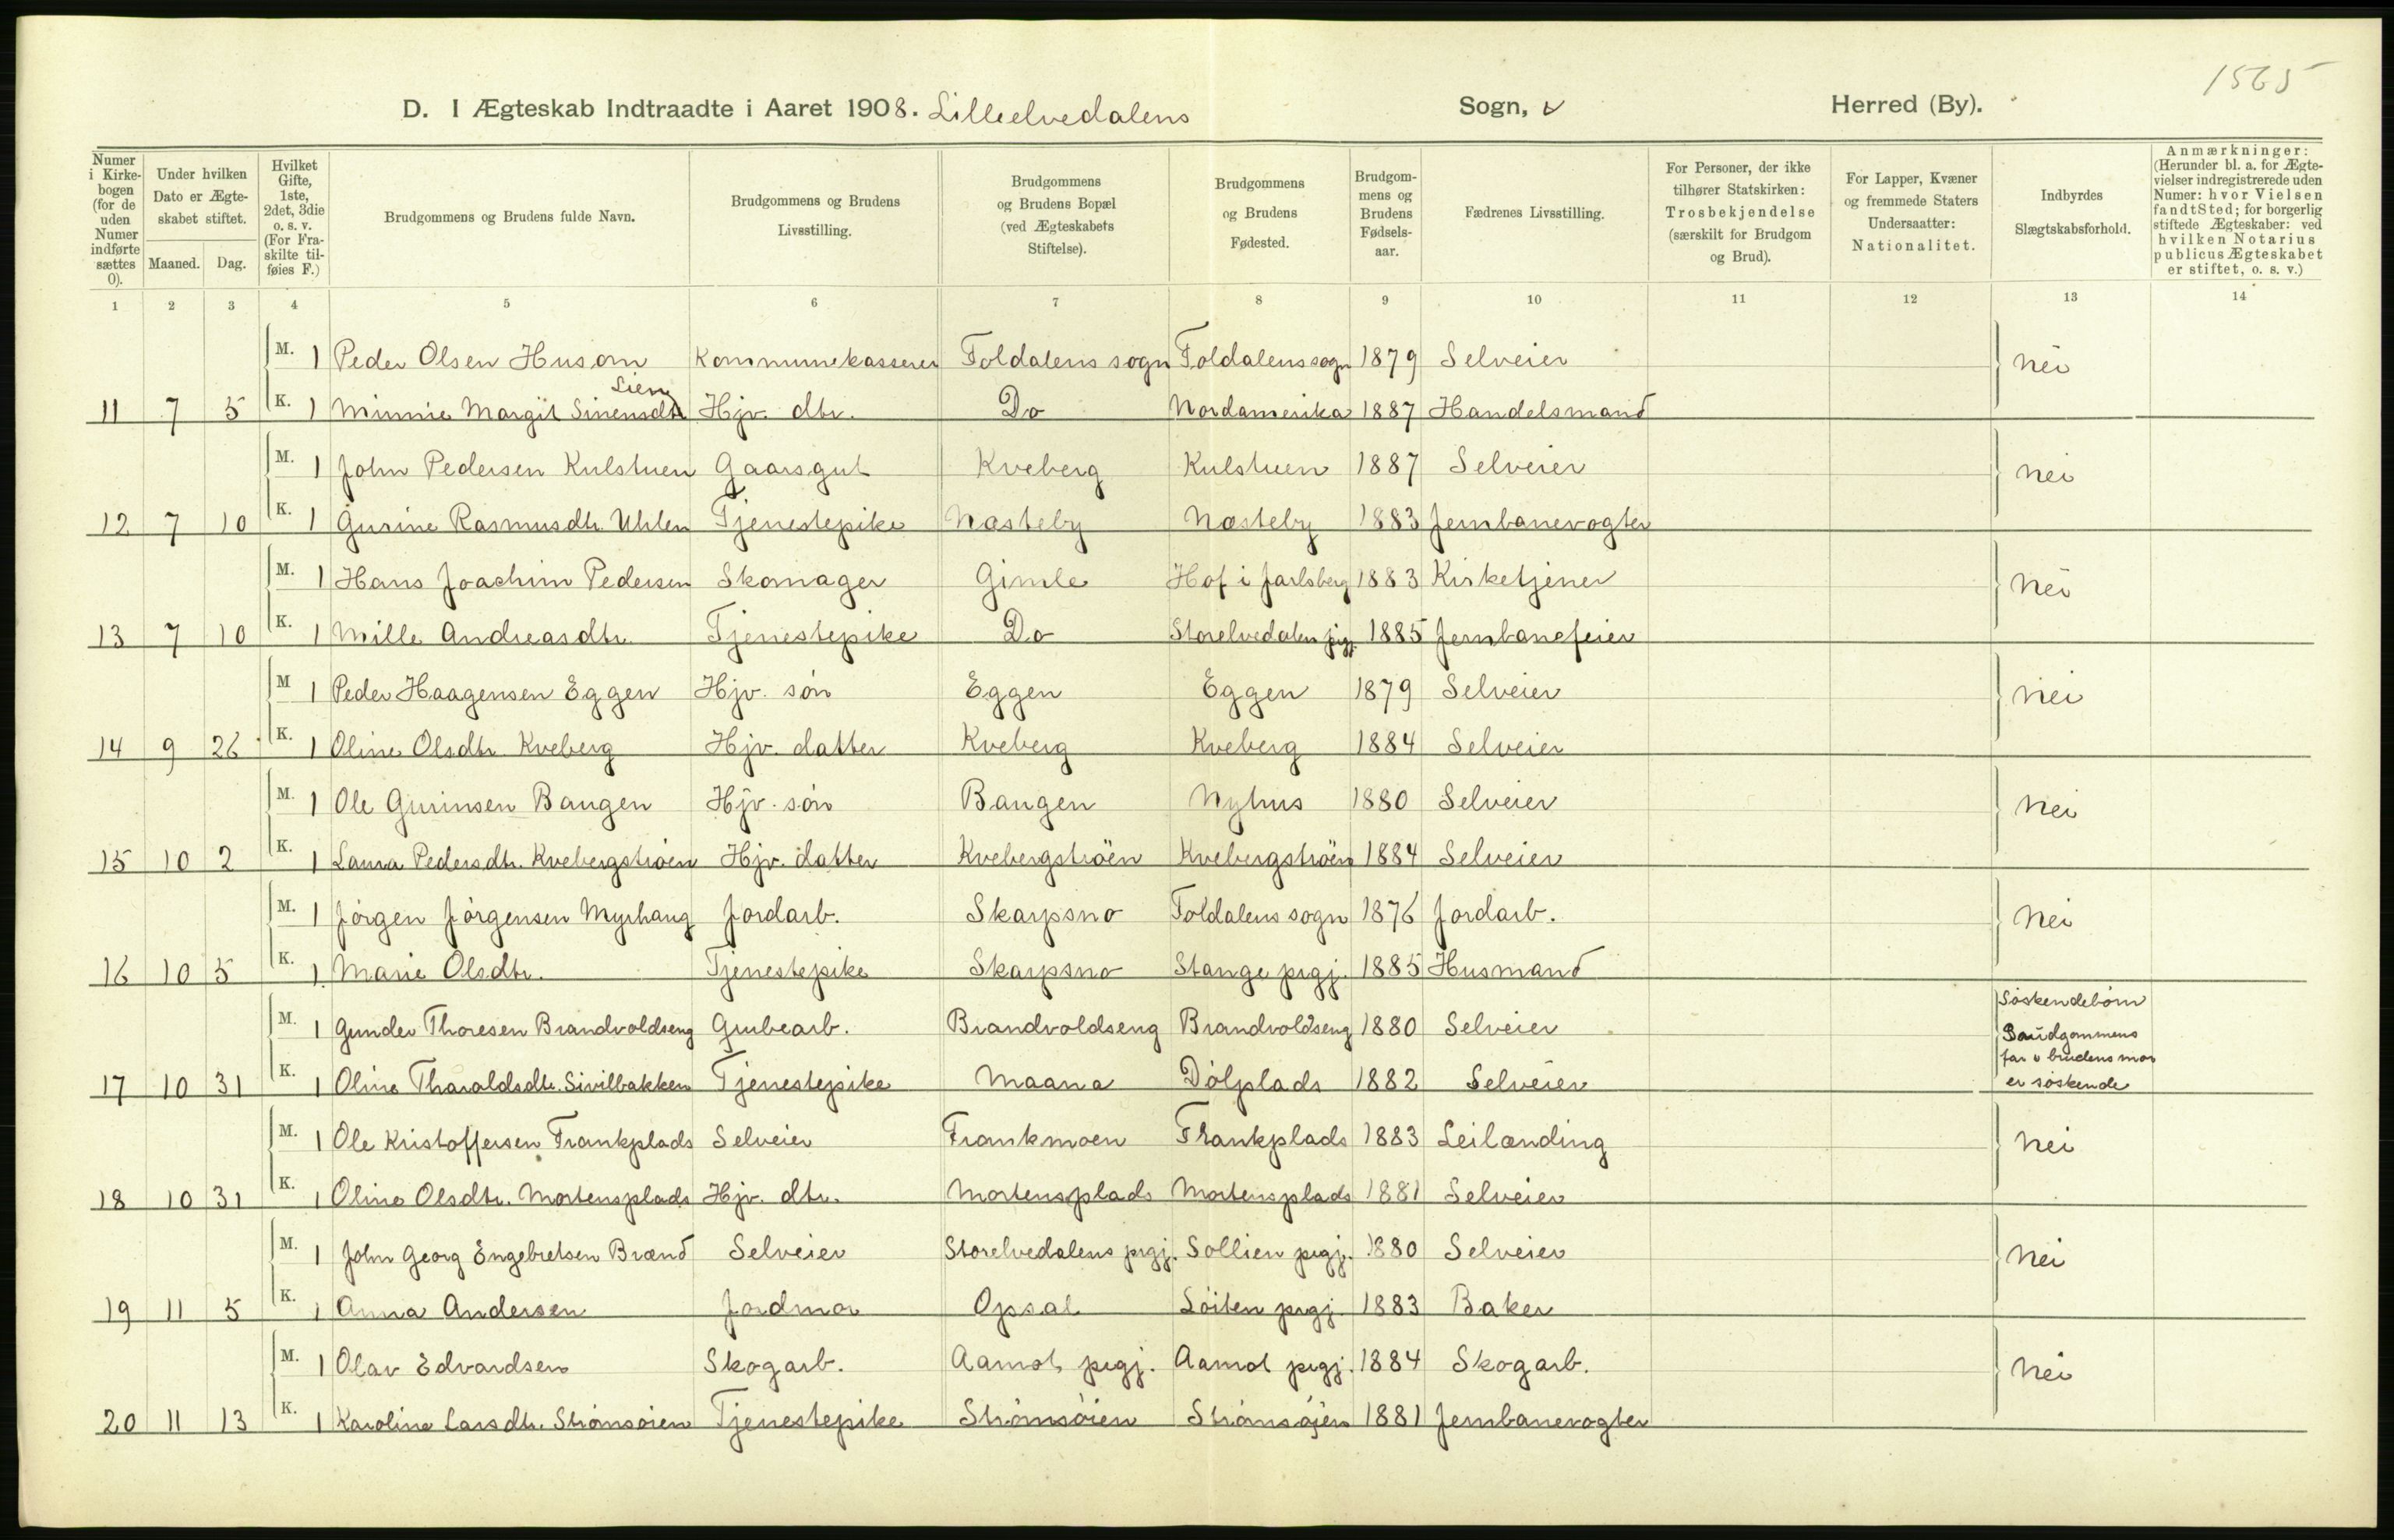 1565
D. I Ægteskab Indtraadte i Aaret 1908. Lilleelvedalens Sogn, Herred (By).
Numer i Kirkebogen (for de uden Numer indførte sættes 0).
Under hvilken Dato er Ægteskabet stiftet.
Maaned. Dag.
Hvilket Gifte, 1ste, 2det, 3die o. s. v. (For Fraskilte tilføies F.)
Brudgommens og Brudens fulde Navn.
Brudgommens og Brudens Livsstilling.
Brudgommens og Brudens Bopæl (ved Ægteskabets Stiftelse).
Brudgommens og Brudens Fødested.
Brudgommens og Brudens Fødselsaar.
Fædrenes Livsstilling.
For Personer, der ikke tilhører Statskirken: Trosbekjendelse (særskilt for Brudgom og Brud).
For Lapper, Kvæner og fremmede Staters Undersaatter: Nationalitet.
Indbyrdes Slægtskabsforhold.
Anmærkninger: (Herunder bl. a. for Ægtevielser indregistrerede uden Numer: hvor Vielsen fandt Sted; for borgerlig stiftede Ægteskaber: ved hvilken Notarius publicus Ægteskabet er stiftet, o. s. v.)
1 2 3 4 5 6 7 8 9 10 11 12 13 14
M. 1 Peder Olsen Husom Kommunekasserer Foldalens sogn Foldalens sogn 1879 Selveier nei
Lien
11 7 5 K. 1 Minnie Margit Sinensdtr Hjv. dtr. Do Nordamerika 1887 Handelsmand
M. 1 John Pedersen Kulstuen Gaarsgut Kveberg Kulstuen 1887 Selveier nei
12 7 10 K. 1 Gurine Rasmusdtr. Uhlen Tjenestepike Næsteby Næsteby 1883 Jernbanevogter
M. 1 Hans Joachim Pedersen Skomager Gimle Hof i Jarlsberg 1883 Kirketjener nei
13 7 10 K. 1 Mille Andreasdtr. Tjenestepike Do Storelvedalen prgj. 1885 Jernbanefeier
M 1 Peder Haagensen Eggen Hjv. søn Eggen Eggen 1879 Selveier nei
14 9 26 K. 1 Oline Olsdtr. Kveberg Hjv. datter Kveberg Kveberg 1884 Selveier
M. 1 Ole Gurinsen Baugen Hjv. søn Baugen Nyhus 1880 Selveier nei
15 10 2 K. 1 Laura Pedersdtr. Kvebergstrøen Hjv. datter Kvebergströen Kvebergströen 1884 Selveier
M. 1 Jörgen Jörgensen Myrhaug Jordarb. Skarpsno Foldalens sogn 1876 Jordarb. nei
16 10 5 K. 1 Marie Olsdtr. Tjenestepike Skarpsno Stange prgj. 1885 Husmand
M. 1 Gunder Thoresen Brandvoldseng Grubearb. Brandvoldseng Brandvoldseng 1880 Selveier Söskendebörn Brudgommens
17 10 31 K. 1 Oline Tharaldsdtr. Sivilbakken Tjenestepike Maana Dölplads 1882 Selveier far o brudens mor er söskende
M. 1 Ole Kristoffersen Frankplads Selveier Frankmoen Frankplads 1883 Leilænding nei
18 10 31 K. 1 Oline Olsdtr. Mortensplads Hjv. dtr. Mortensplads Mortensplads 1881 Selveier
M. 1 John Georg Engebretsen Brænd Selveier Storelvedalens prgj. Sollien prgj. 1880 Selveier nei
19 11 5 K. 1 Anna Andersen Jordmor Opsal Löiten prgj. 1883 Baker
M. 1 Olav Edvardsen Skogarb. Aamot prgj. Aamot prgj. 1884 Skogarb. nei
20 11 13 K. 1 Karoline Larsdtr. Strömsöien Tjenestepike Strömsöien Strömsöien 1881 Jernbanevogter